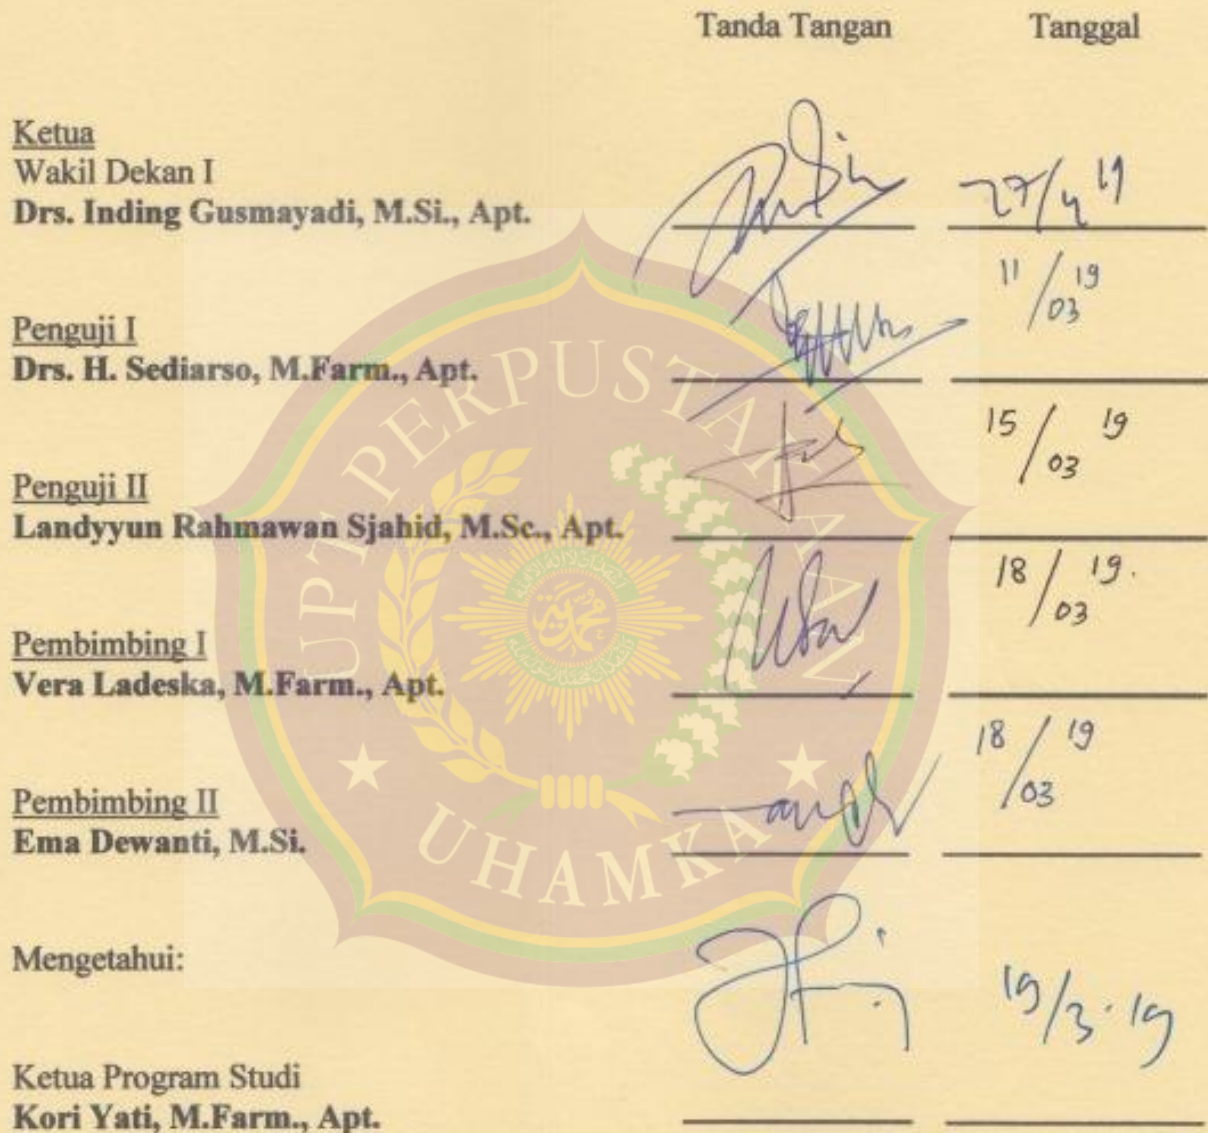 Tanda Tangan Tanggal
Ketua
Wakil Dekan I
Drs. Inding Gusmayadi, M.Si., Apt. 27/4 19
11/03 19
Penguji I
Drs. H. Sediarso, M.Farm., Apt.
15/03 19
Penguji II
Landyyun Rahmawan Sjahid, M.Sc., Apt.
18/03 19.
Pembimbing I
Vera Ladeska, M.Farm., Apt.
18/03 19
Pembimbing II
Ema Dewanti, M.Si.
Mengetahui:
19/3.19
Ketua Program Studi
Kori Yati, M.Farm., Apt.
UPT PERPUSTAKAAN
UHAMKA